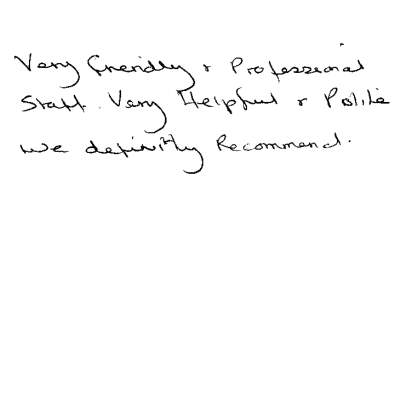 Very friendly & Professional
Staff. Very Helpful & Polite
we definitly Recommend.